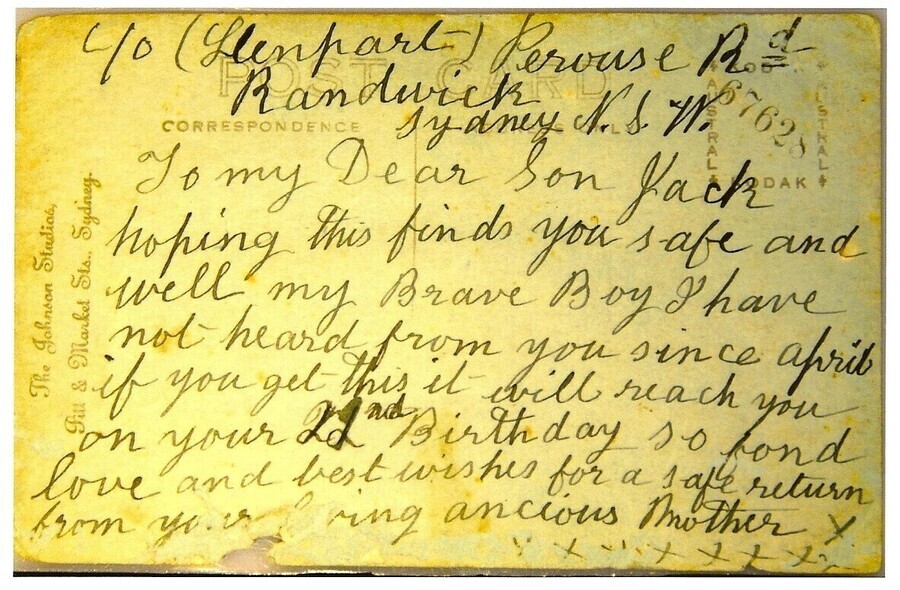 c/o (Lenpart) Perouse Rd
POST CARD
Randwick
CORRESPONDENCE
Sydney N.S.W.
67628
AUSTRAL
KODAK
AUSTRAL
To my Dear Son Jack
hoping this finds you safe and
well my Brave Boy I have
not heard from you since april
if you get this it will reach you
on your 22nd Birthday so fond
love and best wishes for a safe return
from your ancious Mother X
X X X X X X
The Johnson Studios,
& Market Sts., Sydney.